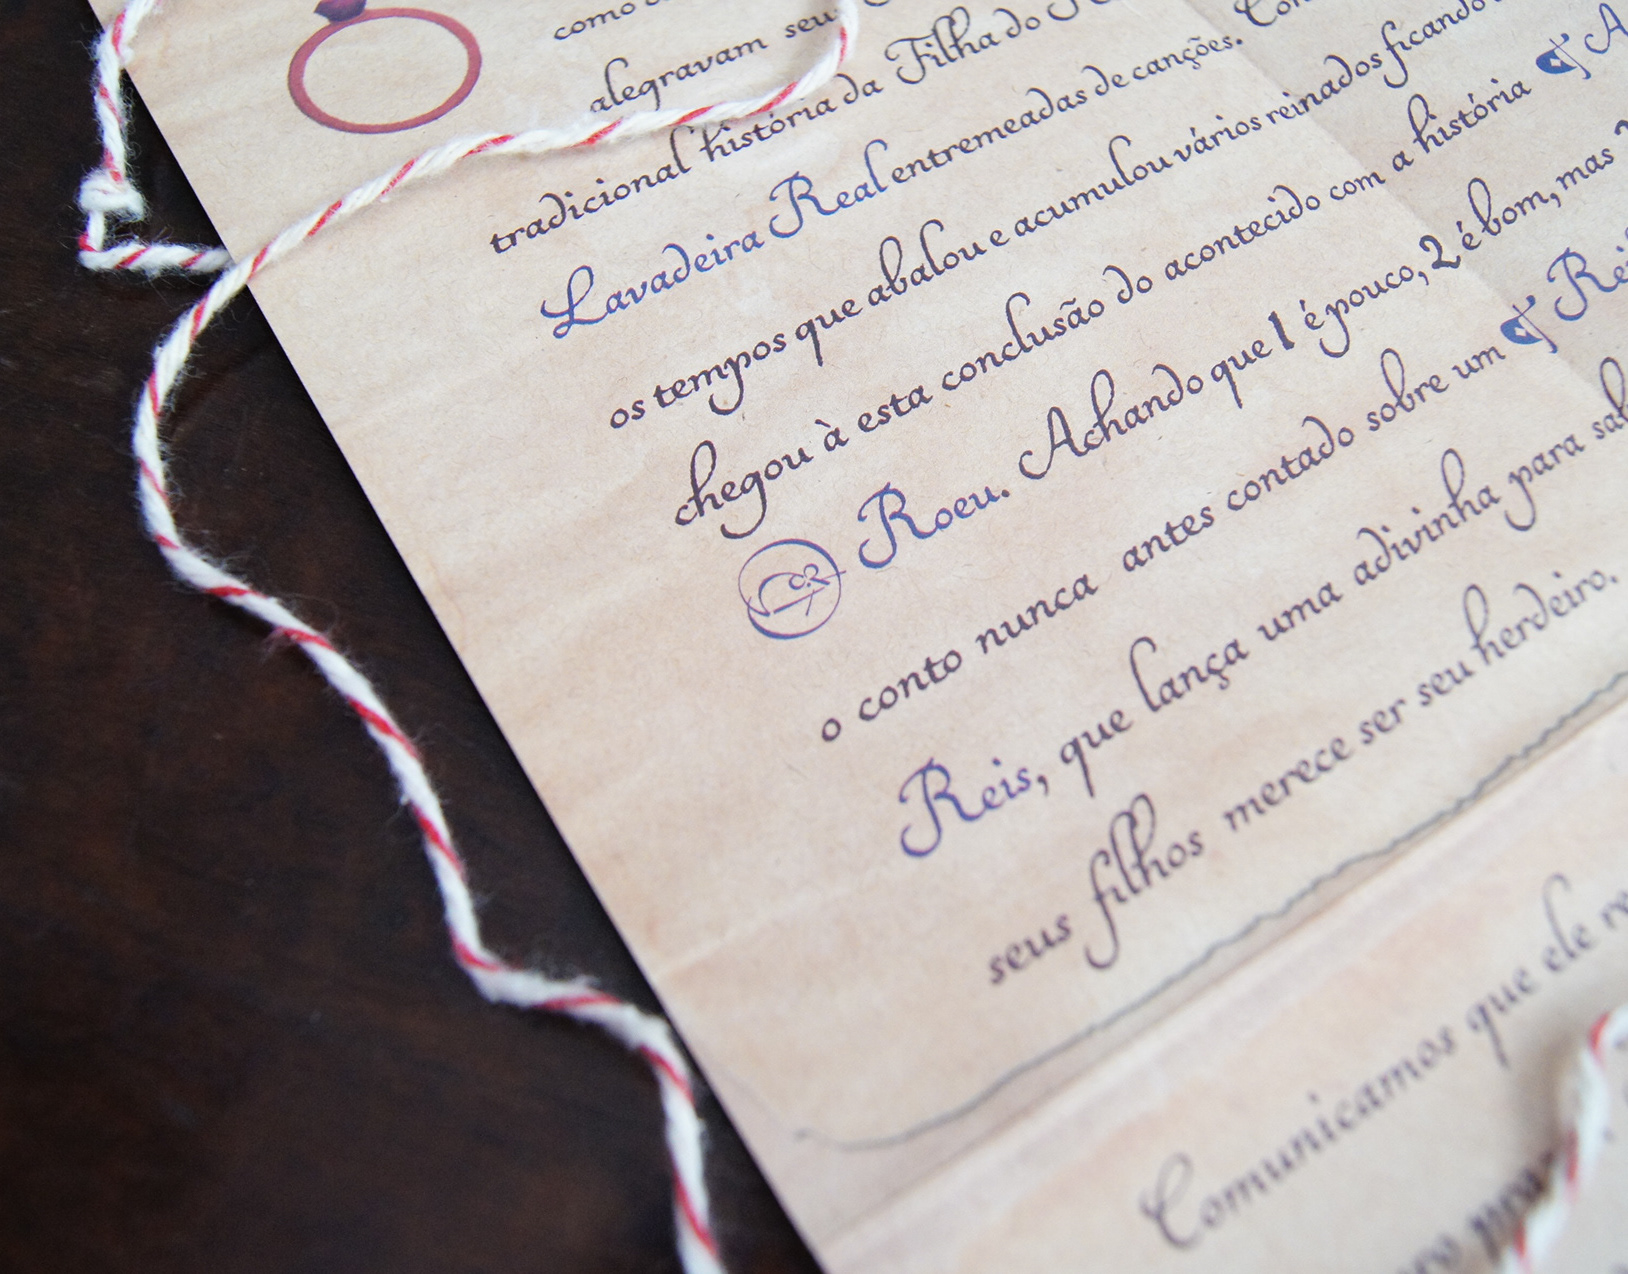 como
alegravam
tradicional história da Filha do
Lavadeira Real entremeadas de canções.
os tempos que abalou e acumulou vários reinados ficando
chegou à esta conclusão do acontecido com a história
Roeu. Achando que 1 é pouco, 2 é bom, mas
o conto nunca antes contado sobre um
Reis, que lança uma adivinha para
seus filhos merece ser seu herdeiro.
Comunicamos que ele